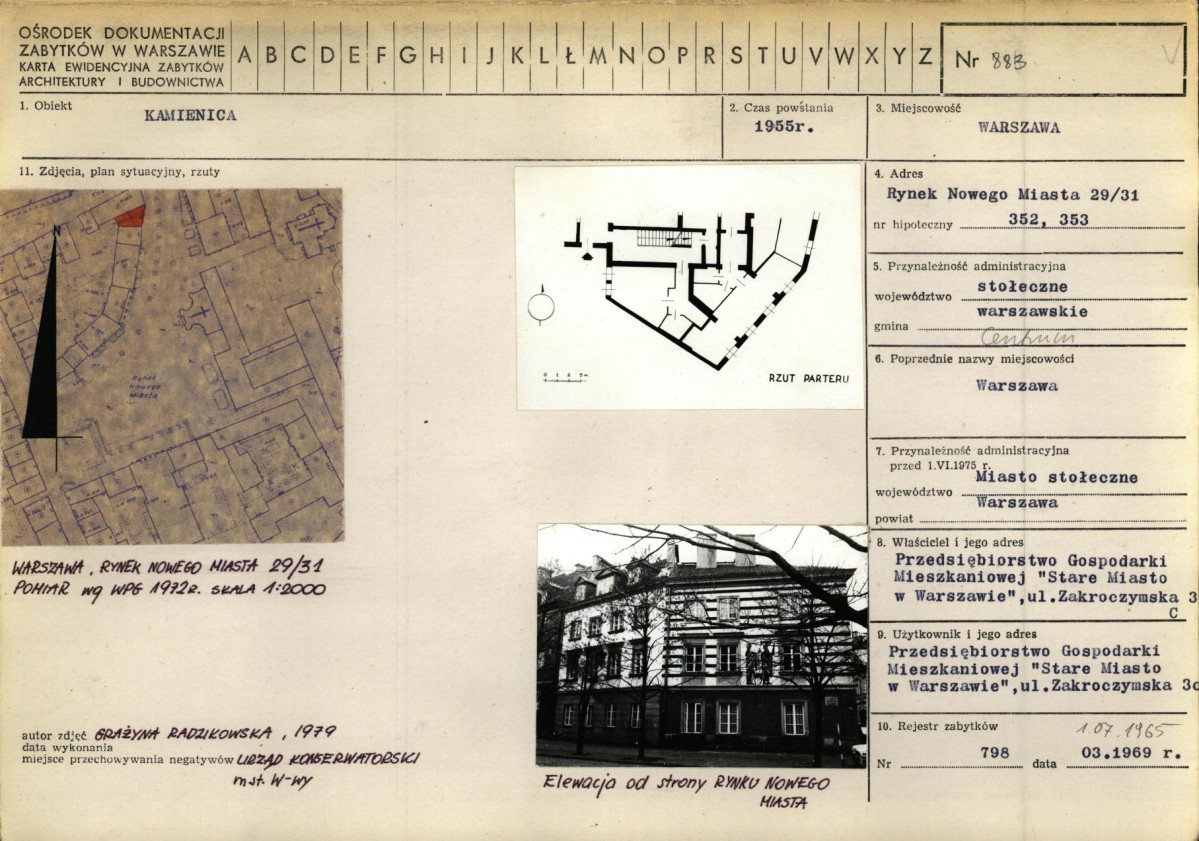 OŚRODEK DOKUMENTACJI
ZABYTKÓW W WARSZAWIE
KARTA EWIDENCYJNA ZABYTKÓW
ARCHITEKTURY I BUDOWNICTWA
A B C D E F G H I J K L Ł M N O P R S T U V W X Y Z
Nr 883
1. Obiekt
KAMIENICA
2. Czas powstania
1955r.
3. Miejscowość
WARSZAWA
11. Zdjęcia, plan sytuacyjny, rzuty
N
RYNEK
NOWEGO
MIASTA
0 1 2 3 5m
RZUT PARTERU
WARSZAWA, RYNEK NOWEGO MIASTA 29/31
POMIAR wg WPG 1972R. SKALA 1:2000
autor zdjęć GRAŻYNA RADZIKOWSKA, 1979
data wykonania
miejsce przechowywania negatywów URZĄD KONSERWATORSKI
m.st. W-wy
Elewacja od strony RYNKU NOWEGO
MIASTA
4. Adres
Rynek Nowego Miasta 29/31
nr hipoteczny 352, 353
5. Przynależność administracyjna
stołeczne
województwo
warszawskie
gmina
Centrum
6. Poprzednie nazwy miejscowości
Warszawa
7. Przynależność administracyjna
przed 1.VI.1975 r.
Miasto stołeczne
województwo
Warszawa
powiat
8. Właściciel i jego adres
Przedsiębiorstwo Gospodarki
Mieszkaniowej "Stare Miasto
w Warszawie",ul.Zakroczymska 3
C
9. Użytkownik i jego adres
Przedsiębiorstwo Gospodarki
Mieszkaniowej "Stare Miasto
w Warszawie",ul.Zakroczymska 3c
10. Rejestr zabytków
1.07.1965
Nr 798 data 03.1969 r.